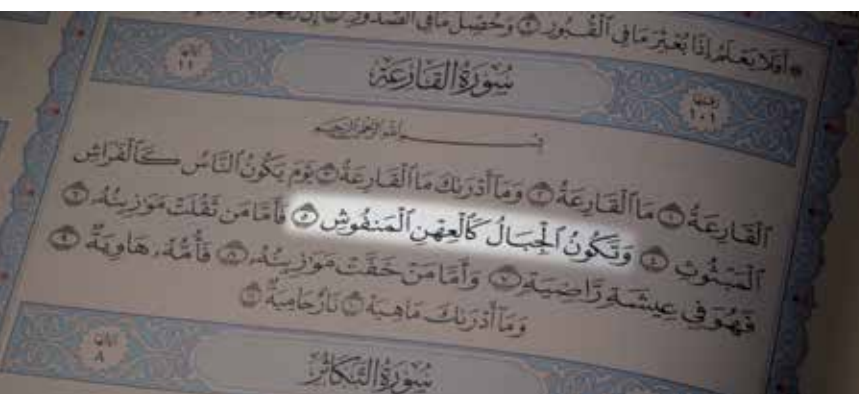 ۞ أَفَلَا يَعْلَمُ إِذَا بُعْثِرَ مَا فِي ٱلْقُبُورِ ٩ وَحُصِّلَ مَا فِي ٱلصُّدُورِ ١٠ إِنَّ رَبَّهُم
سُورَةُ القَارِعَةِ
آياتها ١١
رقمها ١٠١
بِسْمِ ٱللَّهِ ٱلرَّحْمَٰنِ ٱلرَّحِيمِ
ٱلْقَارِعَةُ ١ مَا ٱلْقَارِعَةُ ٢ وَمَآ أَدْرَىٰكَ مَا ٱلْقَارِعَةُ ٣ يَوْمَ يَكُونُ ٱلنَّاسُ كَٱلْفَرَاشِ
ٱلْمَبْثُوثِ ٤ وَتَكُونُ ٱلْجِبَالُ كَٱلْعِهْنِ ٱلْمَنفُوشِ ٥ فَأَمَّا مَن ثَقُلَتْ مَوَٰزِينُهُۥ ٦
فَهُوَ فِي عِيشَةٍ رَّاضِيَةٍ ٧ وَأَمَّا مَنْ خَفَّتْ مَوَٰزِينُهُۥ ٨ فَأُمُّهُۥ هَاوِيَةٌ ٩
وَمَآ أَدْرَىٰكَ مَا هِيَهْ ١٠ نَارٌ حَامِيَةٌۢ ١١
سُورَةُ التَّكَاثُرِ
آياتها ٨